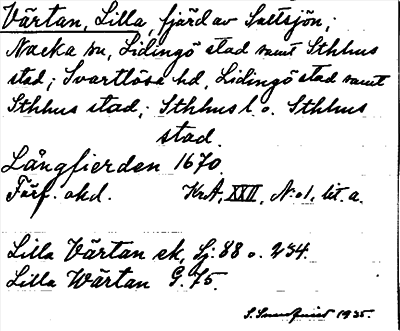 Värtan, Lilla, fjärd av Saltsjön;
Nacka sn, Lidingö stad samt Sthlms
stad; Svartlösa hd, Lidingö stad samt
Sthlms stad; Sthlms l. o. Sthlms
stad.
Långfierden 1670.
Förf. okd. KrA, XXII, N:o 1, lit. a.
Lilla Värtan ek, Sj. 88 o. 234.
Lilla Wärtan G. 75.
1935.